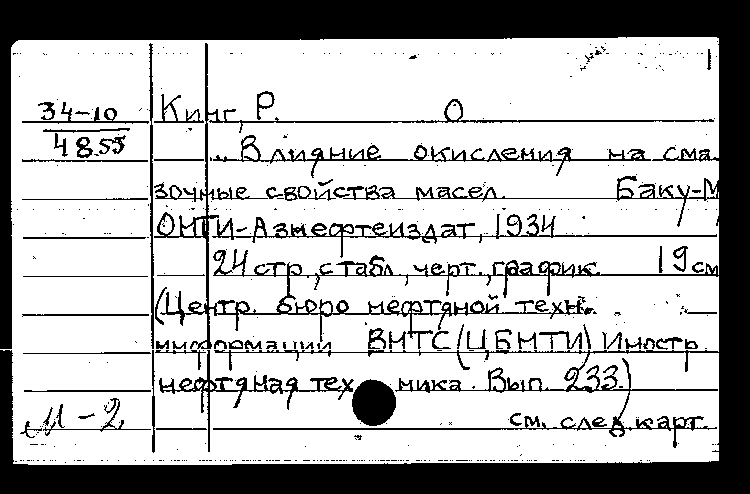 34-10 Кинг, Р. О
4855 „Влияние окисления на сма-
зочные свойства масел. Баку-М
ОНТИ-Азнефтеиздат, 1934
24 стр., с табл., черт., график. 19 см
(Центр. бюро нефтяной техн.
информации ВНТС (ЦБНТИ) Иностр.
нефтяная тех ника. Вып. 233.)
М-2 см. след. карт.